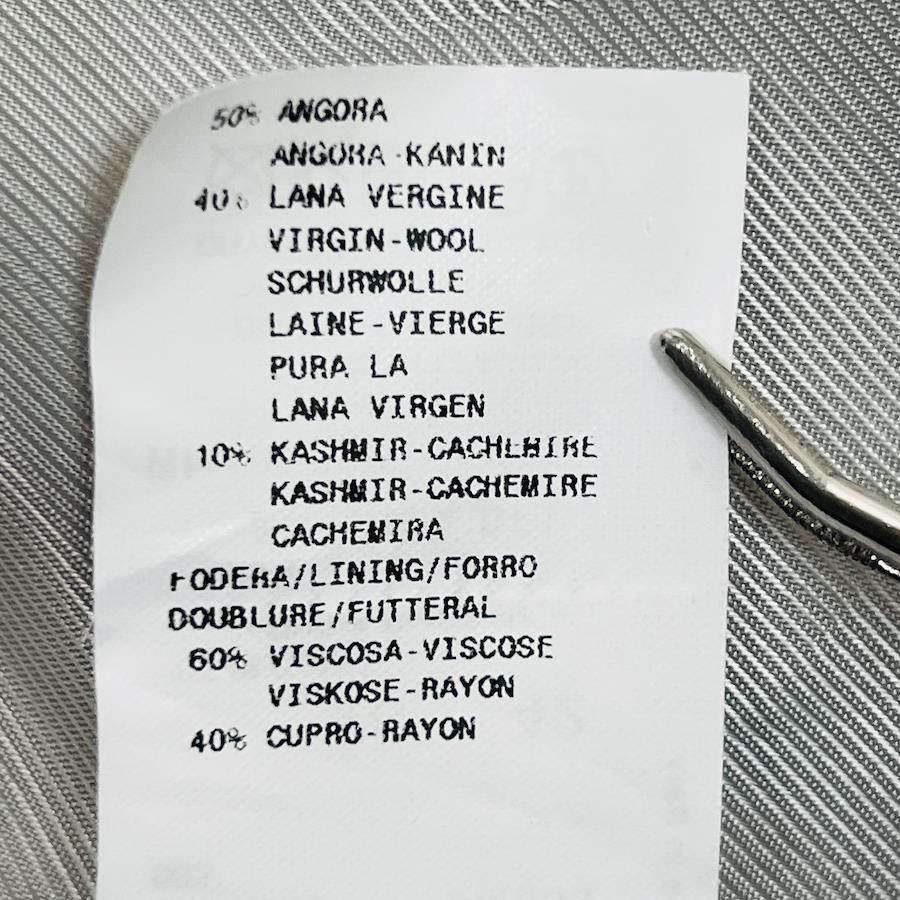 50% ANGORA
ANGORA-KANIN
40% LANA VERGINE
VIRGIN-WOOL
SCHURWOLLE
LAINE-VIERGE
PURA LA
LANA VIRGEN
10% KASHMIR-CACHEMIRE
KASHMIR-CACHEMIRE
CACHEMIRA
FODERA/LINING/FORRO
DOUBLURE/FUTTERAL
60% VISCOSA-VISCOSE
VISKOSE-RAYON
40% CUPRO-RAYON